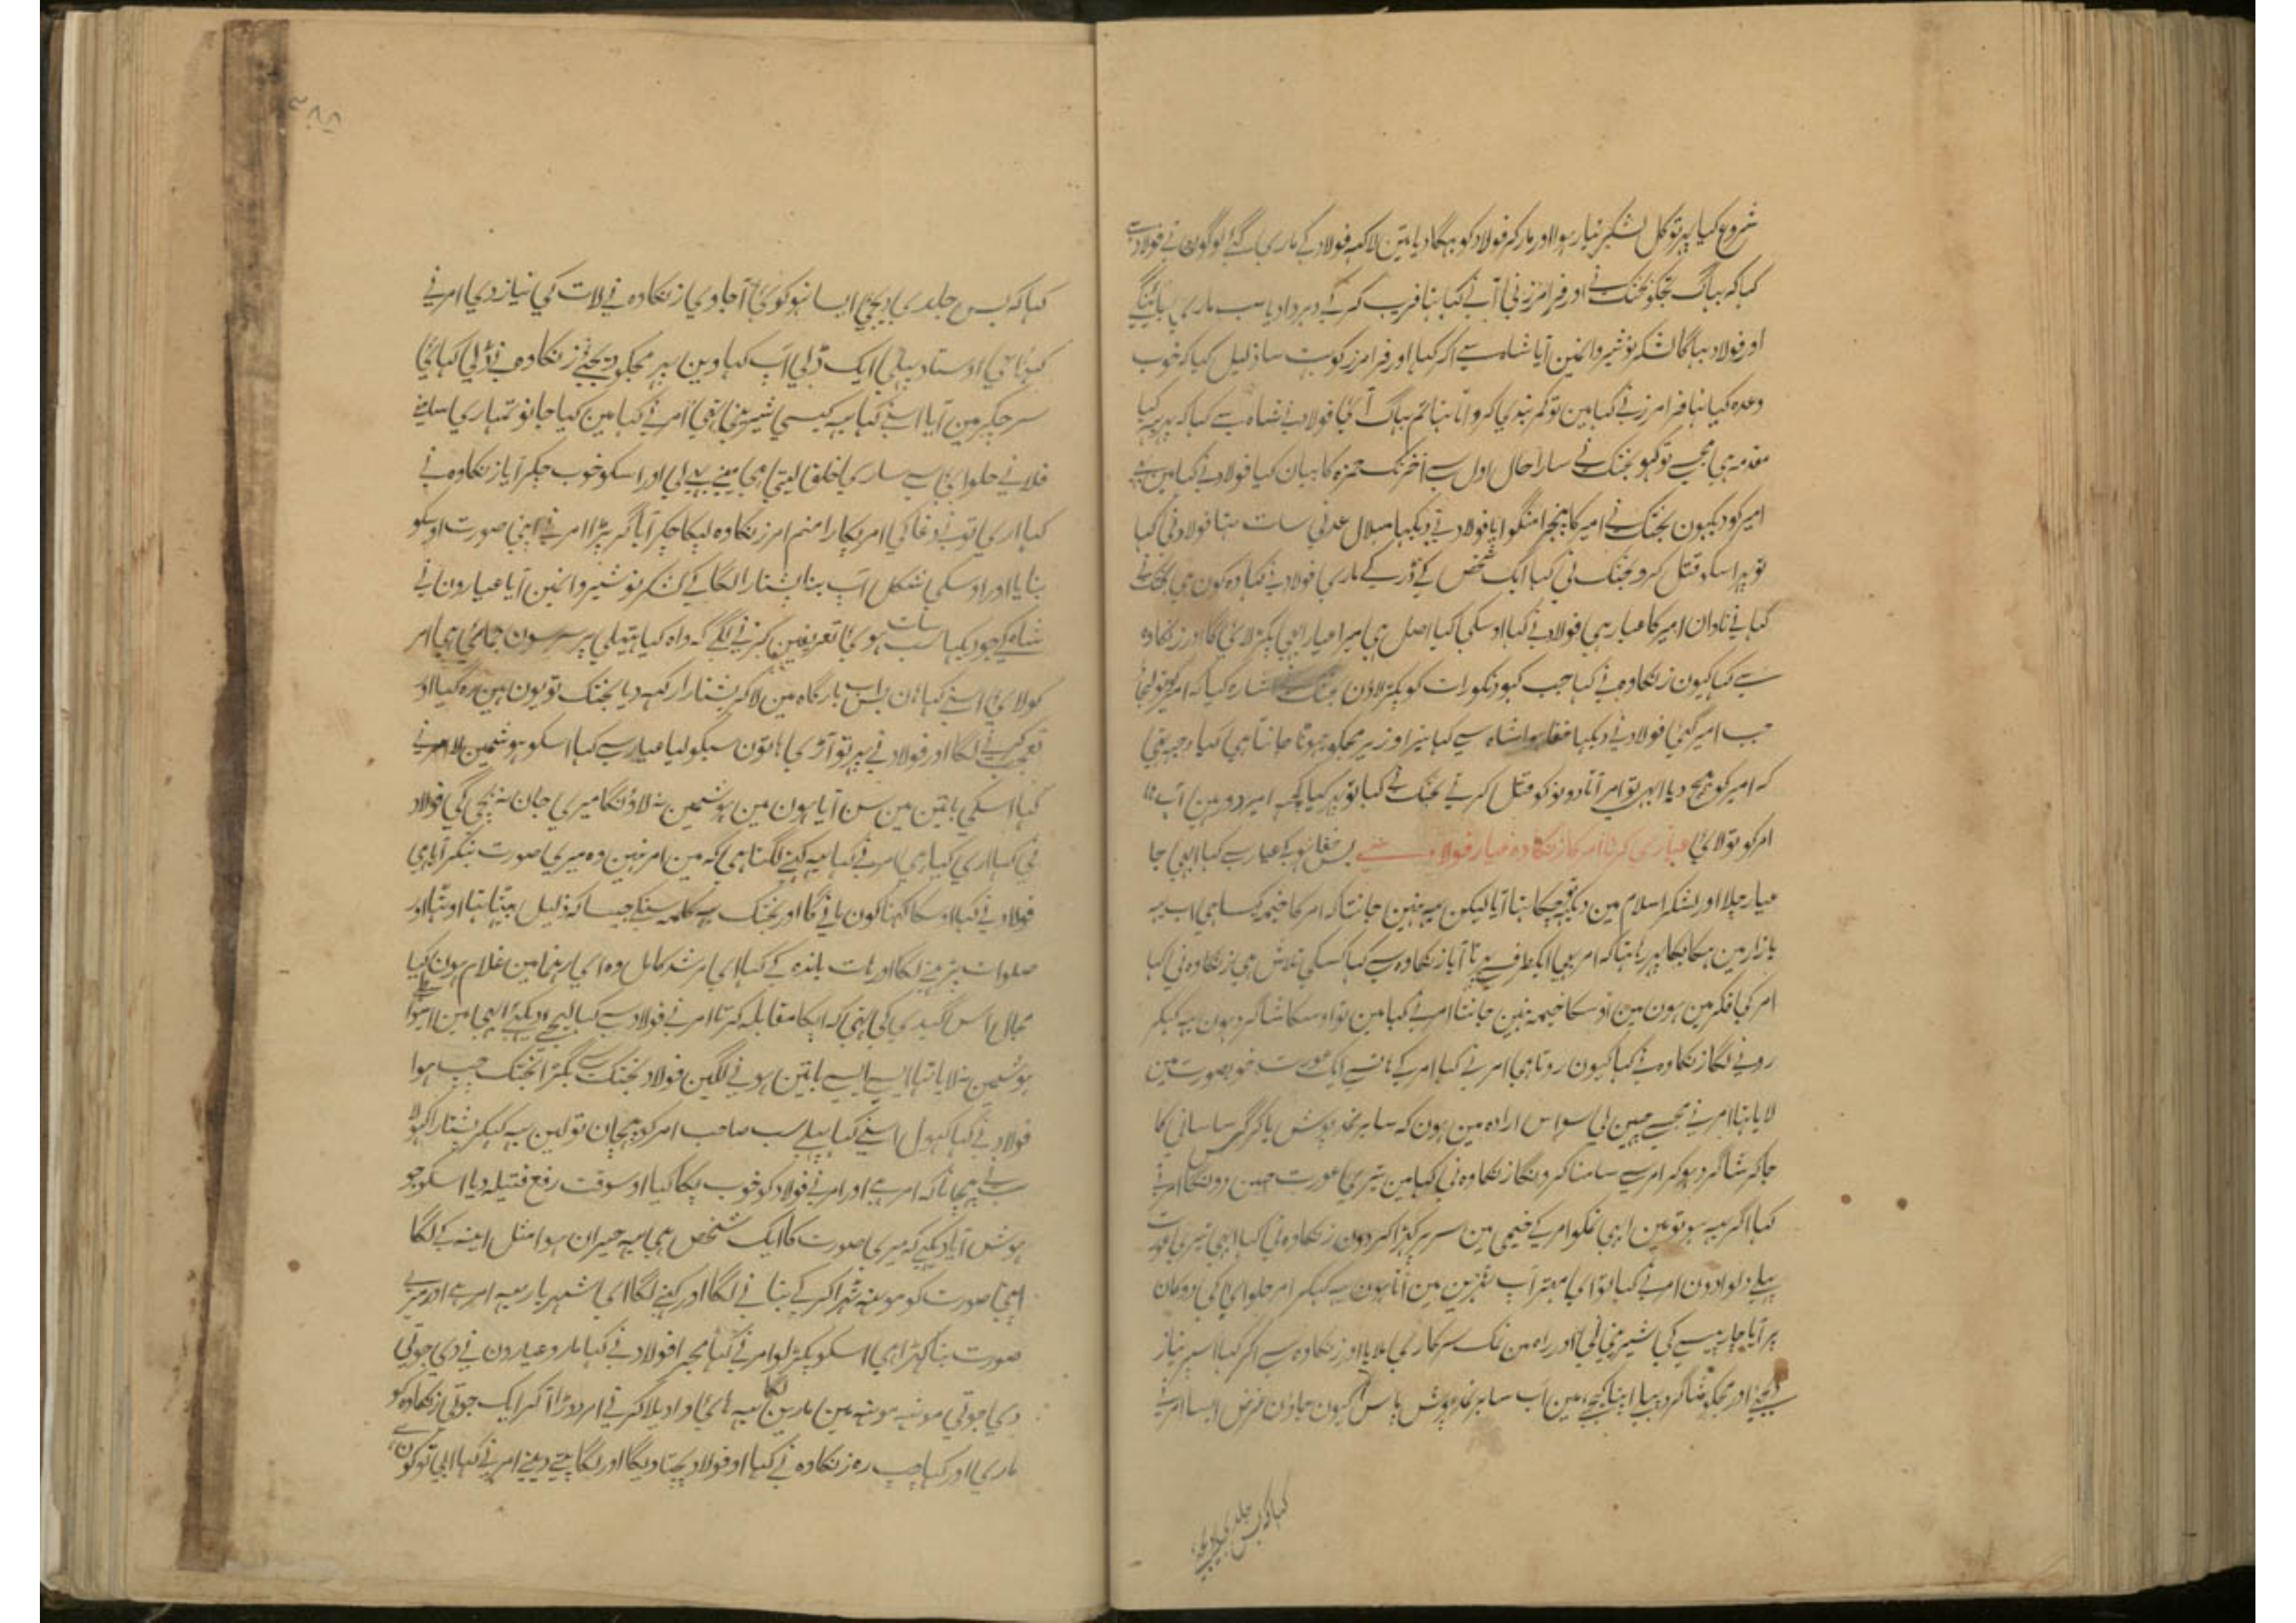 شروع کیا پہر تو کل لشکر تیار ہوا اور مار کر فولاد کو بہگا دیا تین لاکہہ فولاد کے ماری گئے لوگون نے فولاد سے
کہا کہ بہاگ تجکو بختک نے اور فرامرز نی آنے کہا تہا فریب کر کے دہروا دیا سب ماری جائینگے
اور فولاد بہاگا لشکر نوشیروانمین آیا شاہ سے آکر کہا اور فرامرز کو بہت سا ذلیل کیا کہ خوب
وعدہ کیا تہا فرامرز نے کہا مین تو کمر بندی کرواتا تہا تم بہاگ آئی فولاد نے شاہ سے کہا کہ پہر یہہ کیا
مقدمہ ہی مجہسے تو کہو بختک نے سارا حال اول سے آخر تک حمزہ کا بیان کیا فولاد نے کہا مین نے
امیر کو دیکہون بختک نے امیر کا پنجرا منگوایا فولاد نے دیکہا بلال عدنی سات تہا فولاد نی کہا
تو پہر اسکو قتل کرو بختک نی کہا ایک شخص کے ڈر کے ماری فولاد نے کہا وہ کون ہی بختک نے
کہا اے نادان امیر کا عیار ہی فولاد نے کہا اوسکی کیا اصل ہی میرا عیار ابہی پکڑ لائیگا اور زنکاوہ
سے کہا کیون زنکاوہ نے کہا جب کہو دنکو رات کو پکڑ لاؤن بختک نے اشارہ کیا کہ امیر کو لیجاؤ
جب امیر گئی فولاد نے دیکہا خفا ہوا شاہ سے کہا تیرا وزیر مجکو جہوٹا جانتا ہی کیا وجہ تہی
کہ امیر کو بہیج دیا ابہی تو امر آتا دونو کو قتل کرتے بختک نے کہا تو پہر کیا کچہہ امیر دور ہین آپ
امر کو تو لائی عیاری کرنا امر کا زنکاوہ عیار فولاد سے بس خفا ہو کے عیار سے کہا ابہی جا
عیار چلا اور لشکر اسلام مین دیکہہ چکا تہا آیا لیکن یہہ نہین جانتا کہ امر کا خیمہ کیسا ہی اب یہہ
بازار مین ہکا بکا پہر رہا تہا کہ امر بہی ایکطرف سے پہرتا آیا زنکاوہ سے کہا کسکی تلاش ہی زنکاوہ نی کہا
امر کی فکر مین ہون مین اوسکا خیمہ نہین جانتا امر نے کہا مین تو اوسکا شاگرد ہون یہہ کہکر
رونے لگا زنکاوہ نے کہا کیون روتا ہی امر نے کہا امر کے ایک عورت خوبصورت مین
لایا تہا امر نے مجہسے چہین لی سو اس ارادہ مین ہون کہ سابر نمد پوش یا کرگس ساسانی کا
جا کر شاگرد ہو کر امر سے سامنا کرونگا زنکاوہ نی کہا مین تیری عورت چہین دونگا امر نے
کہا اگر یہہ ہو تو مین ابہی تمکو امر کے خیمی مین سر پر کہڑا کر دون زنکاوہ نی کہا ابہی تیری عورت
پہلے دلوا دون امر نے کہا تو ای مہتر آپ ٹہرین مین آتا ہون یہہ کہکر امر حلوائی کی دوکان
پر آیا چار پیسے کی شیرینی لی اور راہ مین نمک سرکاری ملایا اور زنکاوہ سے آکر کہا اسپر نیاز
دیجئے اور مجکو شاگرد اپنا کیجئے مین اب سابر نمد پوش پاس کیون جاؤن غرض ایسا امر نے
کہا کہ بس جلدی دیجئے
کہا کہ بس جلدی دیجئی ایسا نہو کوئی آ جاوی زنکاوہ نے لات کی نیاز دی امر نے
کہا ای اوستاد پہلی ایک ڈلی آپ کہاوین پہر مجکو دیجئے زنکاوہ نے ڈلی کہائی
سر چکر مین آیا اسنے کہا یہہ کیسی شیرینی تہی امر نے کہا مین کیا جانو تمہاری سامنے
فلانے حلوائی سے ساری خلق لیتی ہی مینے بہی لی اور اسکو خوب چکر آیا زنکاوہ نے
کہا اری تونے دغا کی امر پکارا منم امر زنکاوہ لپکا چکر آیا گر پڑا امر نے اپنی صورت اوسکو
بنایا اور اوسکی شکل آپ بنا پشتارا لگا کے لشکر نوشیروانمین آیا عیارون نے
شاہ کے جو دیکہا سب سات ہوئی تعریفین کرنے لگے کہ واہ کیا ہتیلی پر سرسون جمائی ہی امر
کو لائی اسنے کہا ہان بس اب بارگاہ مین لا کر پشتارا رکہہ دیا بختک تو یون ہین رہ گیا اور
تعجب کرنے لگا اور فولاد نے پہر تو آڑی ہاتون سبکو لیا عیار سے کہا اسکو ہوشمین لا امر نے
کہا اسکی باتین مین سن آیا ہون مین ہوشمین نہ لاؤنگا میری جان نہ بچی گی فولاد
نی کہا اری کیا ہی امر نے کہا یہہ کہنے لگتا ہی کہ مین امر نہین وہ میری صورت بنکر آیا ہی
فولاد نے کہا اوسکا کہنا کون مانے گا اور بختک یہہ کلمہ سنکے جیسا کہ ذلیل بیٹہا تہا اوٹہا اور
صلوات پڑہنے لگا اور ہات باندہ کے کہا ای مرشد کامل وہ ای رہنما مین غلام ہون کیا
مجال اس گیدی کی تہی کہ آپکا مقابلہ کرتا امر نے فولاد سے کہا لیجئے دیکہئے ابہی مین اسکو
ہوشمین نہ لایا تہا ایسے ایسے باتین ہونے لگین فولاد بختک سے بگڑا بختک چپ ہوا
فولاد نے کہا کہول اسنے کہا پہلے سب صاحب امر کو پہچان تو لین یہہ کہکر پشتارا کہولا
سب نے پہچانا کہ امر ہے اور امر نے فولاد کو خوب پکا کیا اوسوقت رفع فتیلہ دیا اسکو جو
ہوش آیا دیکہے کہ میری صورت کا ایک شخص ہی یہہ حیران ہوا مثل آئینہ کے لگا
اپنی صورت کو مونہہ ٹہرا کر کے بنانے لگا اور کہنے لگا ای شہریار یہہ امر ہے اور میرے
صورت بنا کہڑا ہی اسکو پکڑ لو امر نے کہا مجہے فولاد نے کہا مارو عیارون نے دی جوتی
دی جوتی مونہہ مونہہ مین مارین لگا یہہ ہائی واویلا کرنے امر دوڑا آ کر ایک جوتی زنکاوہ کو
ماری اور کہا چپ رہ زنکاوہ نے کہا او فولاد پچتاویگا اور لگا پتے دینے امر نے کہا ابی تو کون ہے